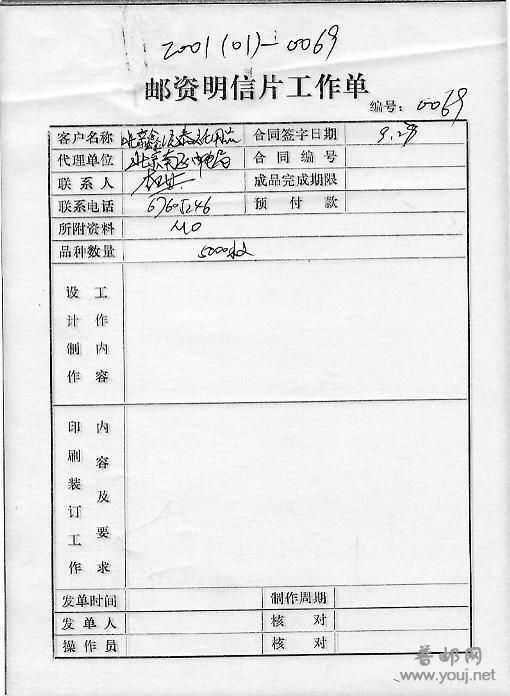 2001(01)-0069
邮资明信片工作单
编号: 0069
客户名称 北京鑫 泰 用品 合同签字日期 9.29
代理单位 北京 电局 合同编号
联系人 成品完成期限
联系电话 67605246 预付款
所附资料 MO
品种数量 5000枚
设计制作 工作内容
印刷装订工作 内容及要求
发单时间 制作周期
发单人 核对
操作员 核对
普邮网
www.youj.net